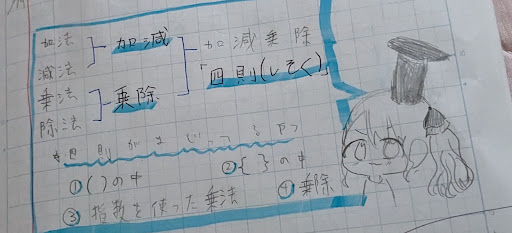 加法
減法
加減
乗法
除法
乗除
加減乗除
「四則(しそく)」
四則がまじって
①( )の中
②{ }の中
③指数を使った乗法
④乗除